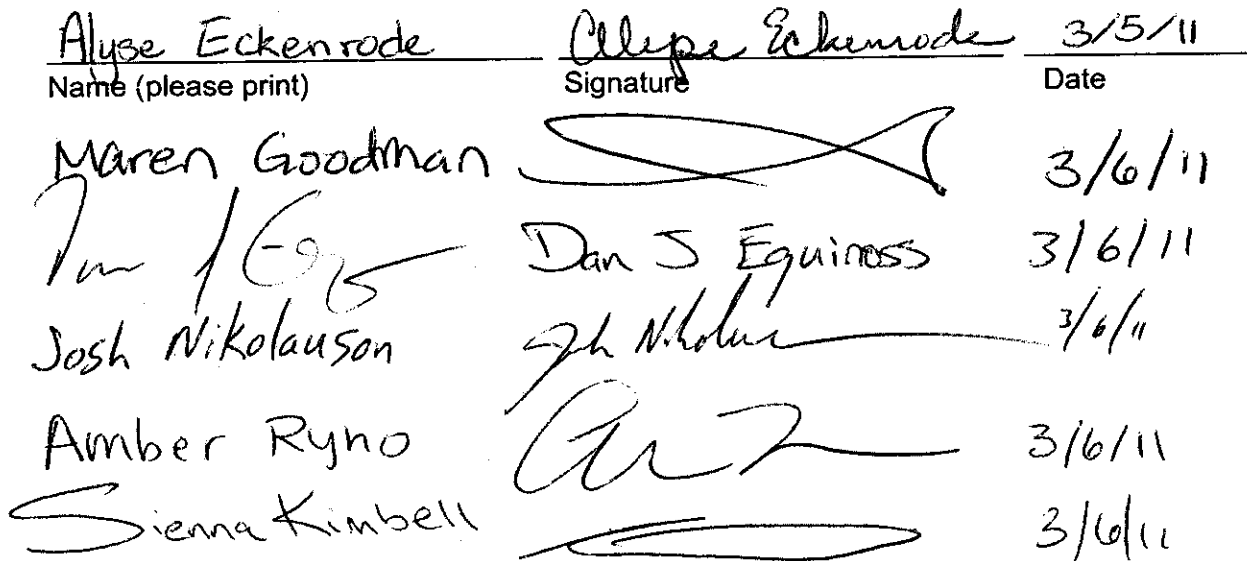 Alyse Eckenrode Alyse Eckenrode 3/5/11
Name (please print) Signature Date
Maren Goodman 3/6/11
Dan S Equinoss 3/6/11
Josh Nikolauson Josh 3/6/11
Amber Ryno 3/6/11
Sienna Kimbell 3/6/11